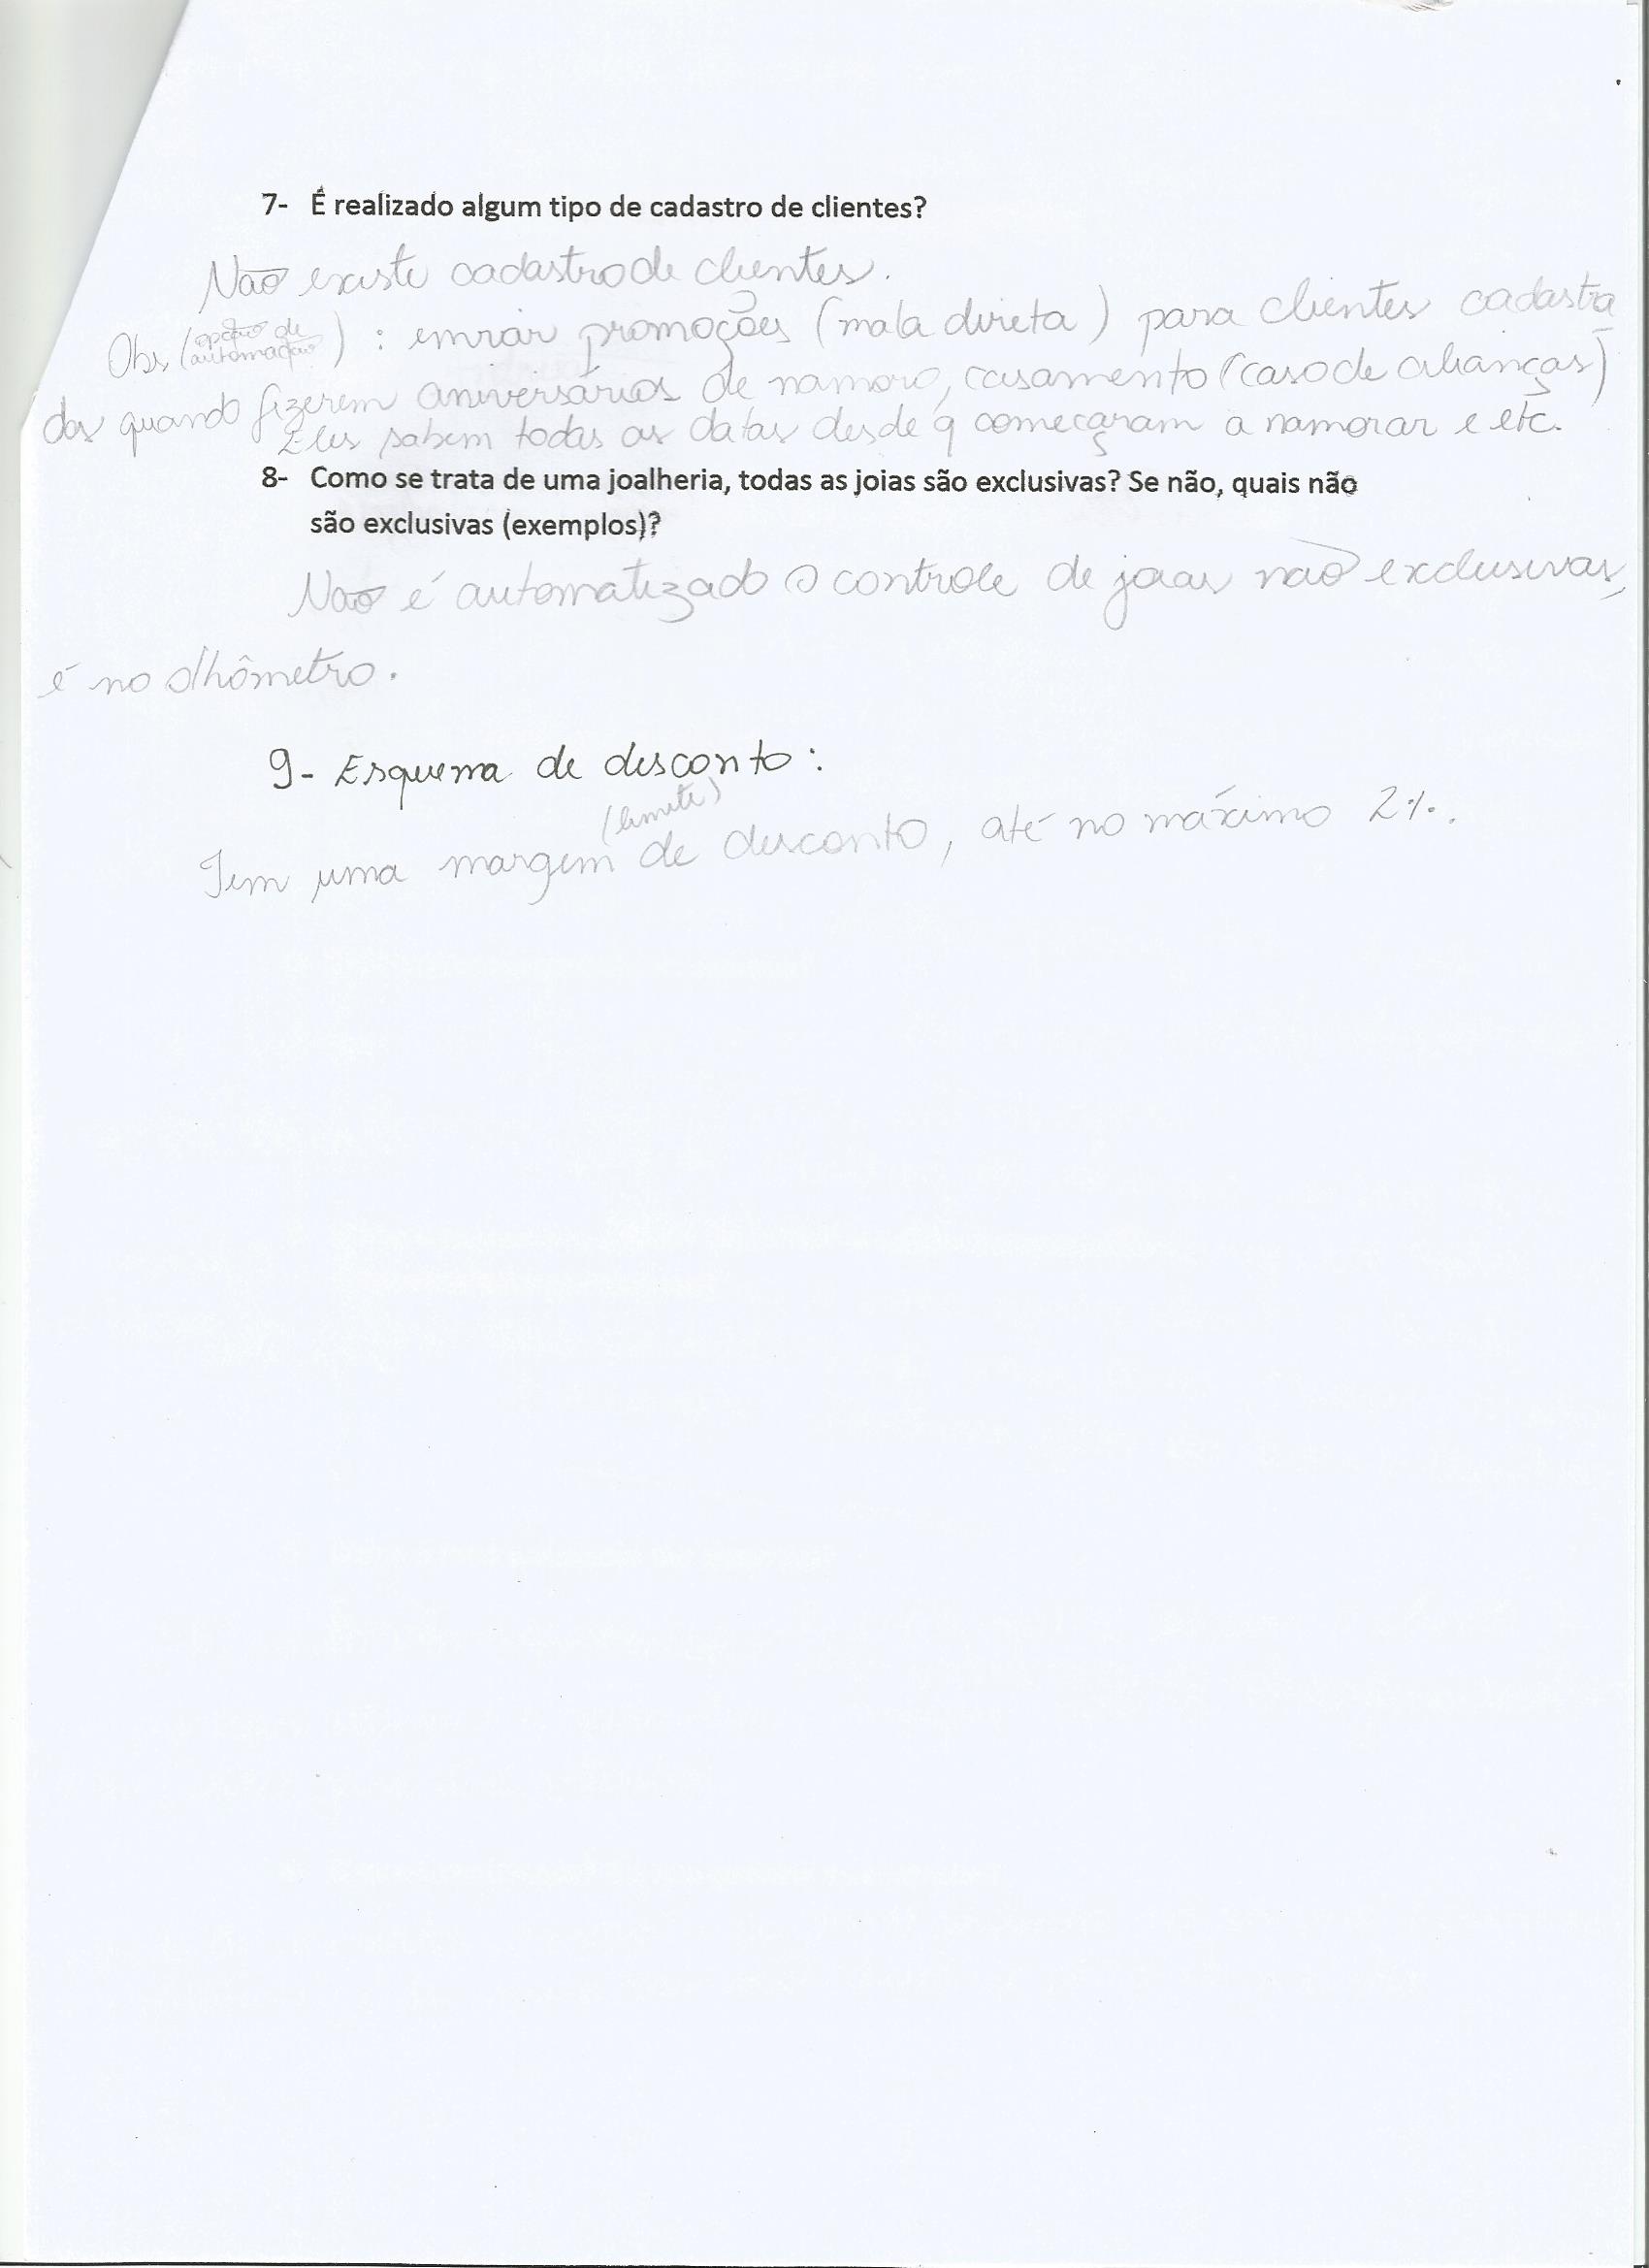 7- É realizado algum tipo de cadastro de clientes?
Não existe cadastro de clientes.
Obs (opção de automação) : enviar promoções (mala direta) para clientes cadastra
dos quando fizerem aniversários de namoro, casamento (caso de alianças)
Eles sabem todas as datas desde q começaram a namorar e etc.
8- Como se trata de uma joalheria, todas as joias são exclusivas? Se não, quais não
são exclusivas (exemplos)?
Não é automatizado o controle de joias não exclusivas,
é no olhômetro.
9- Esquema de desconto:
(limite)
Tem uma margem de desconto, até no máximo 2%.